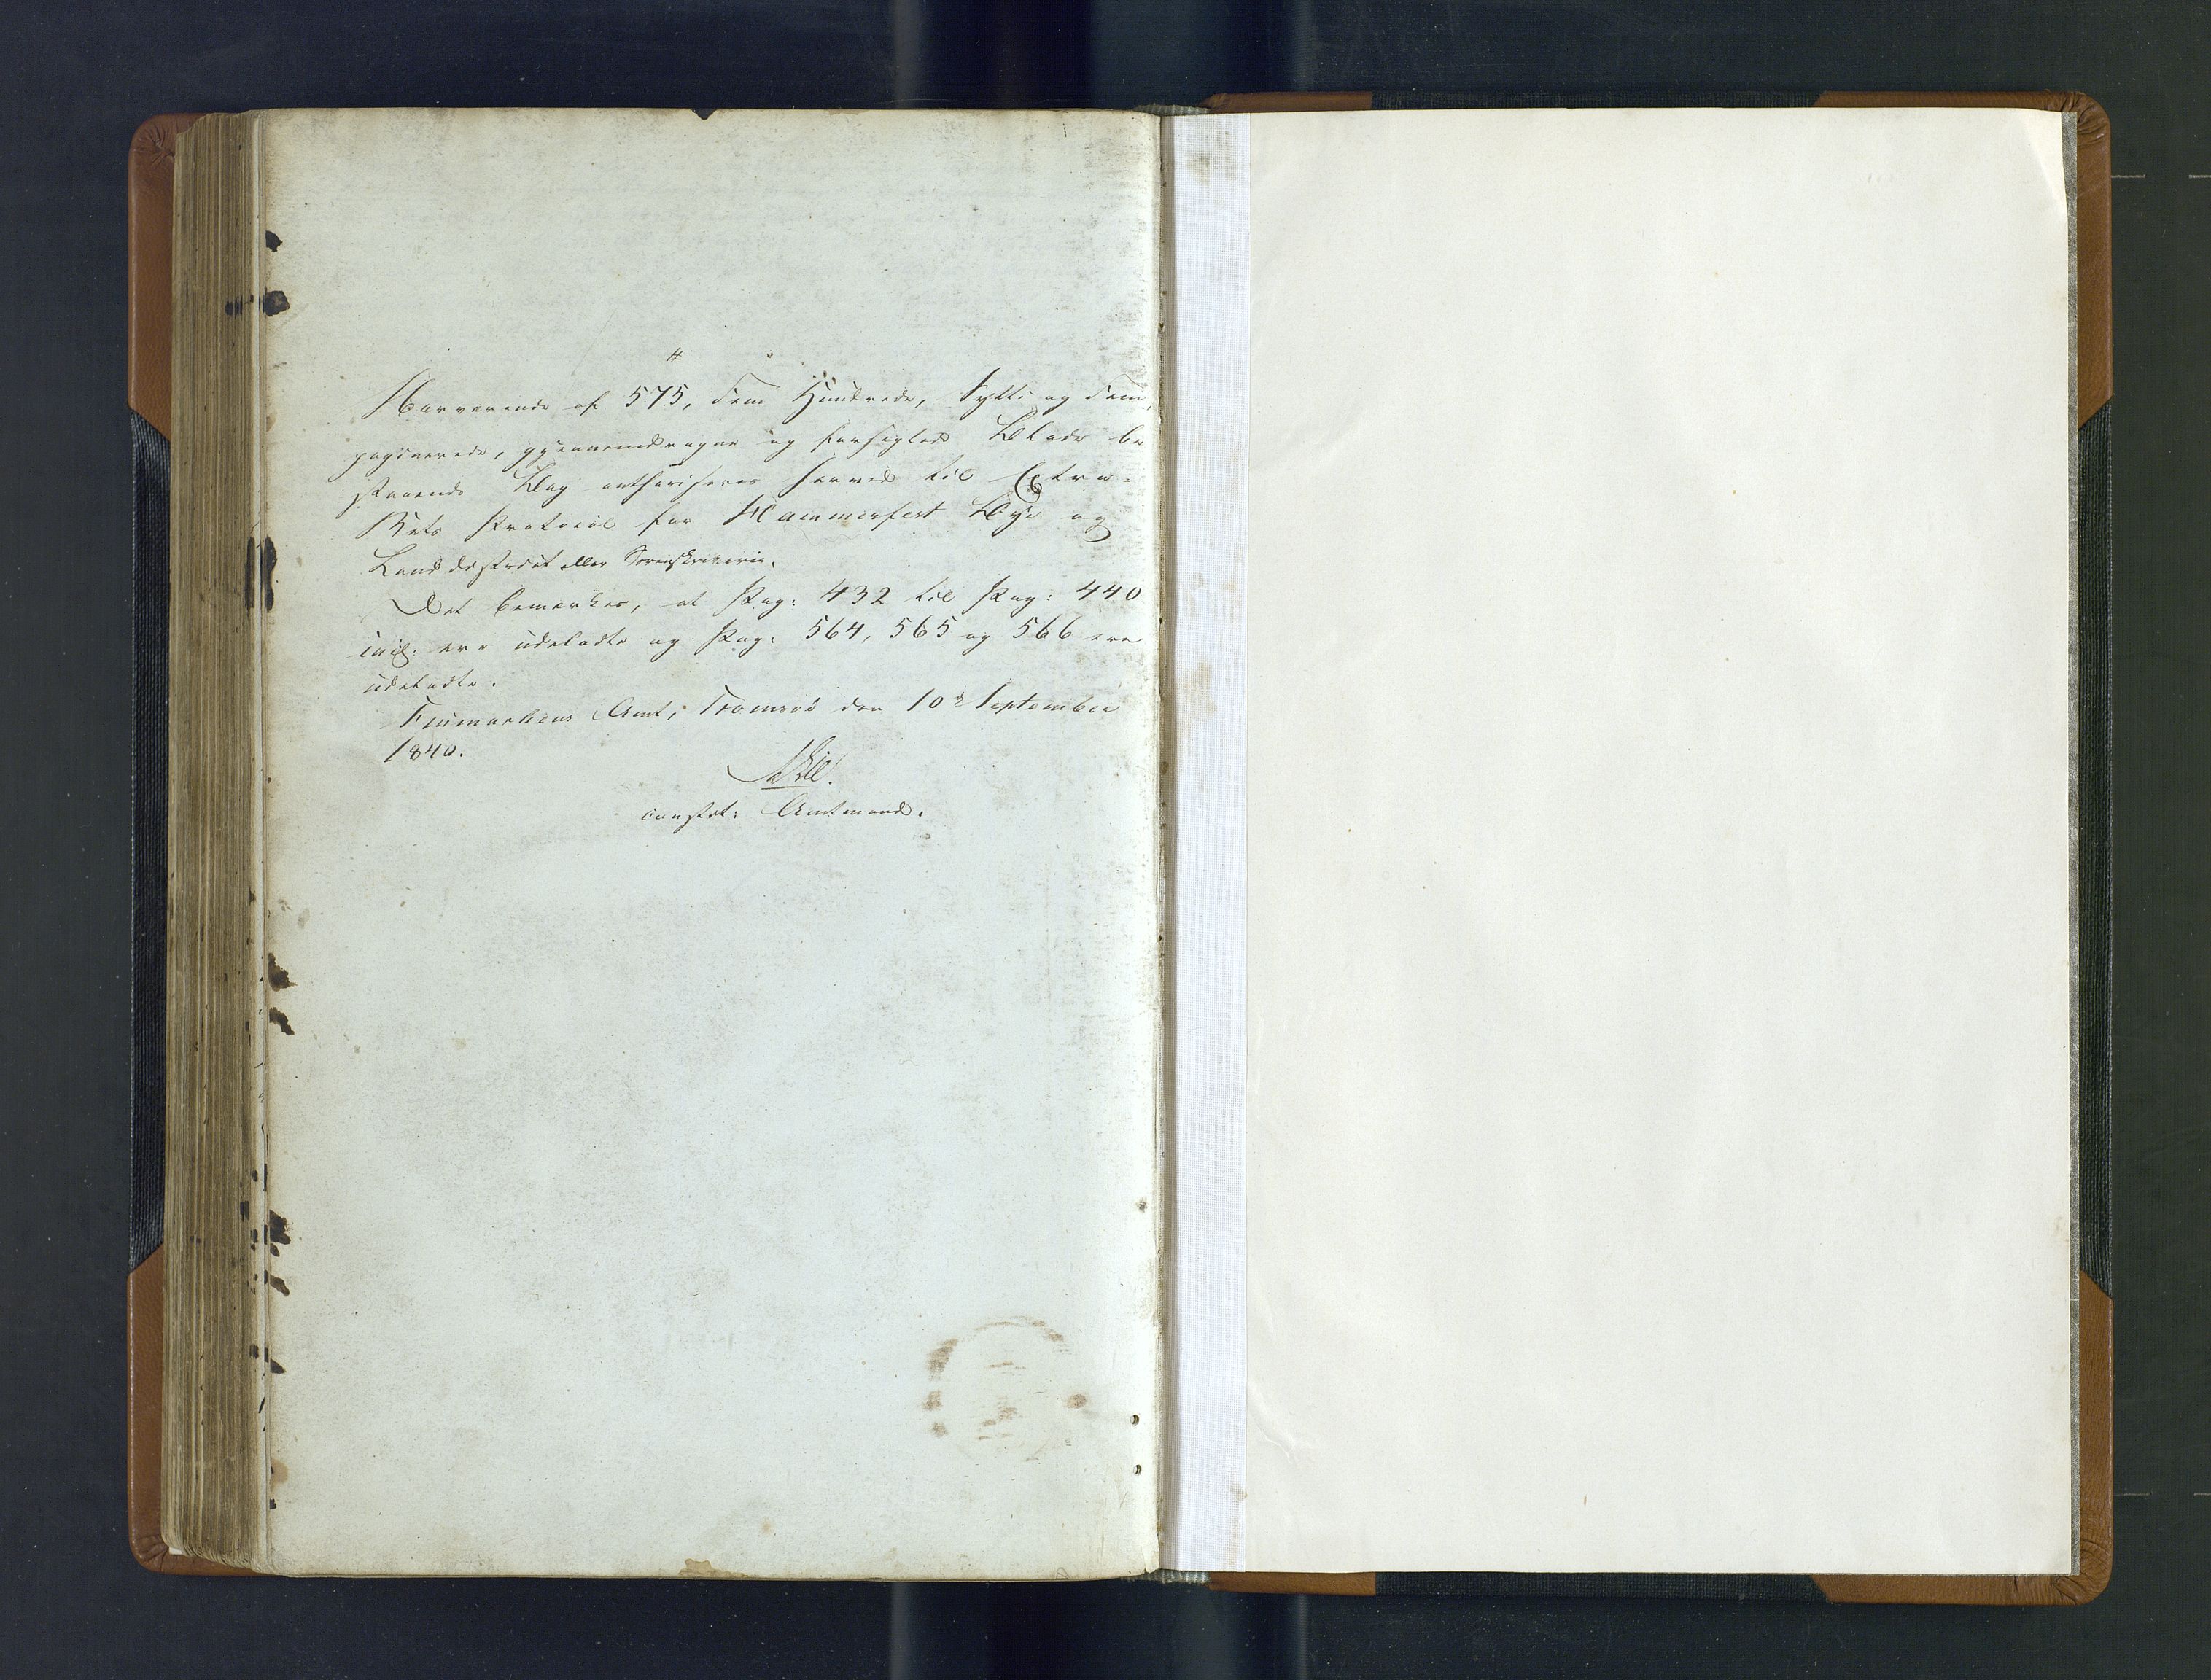 #
Nærværende af 575, Fem Hundrede, Sytti og Fem,
paginerede, gjennemdragne og forseglede Blade be
staaende Bog authoriseres herved til Extra-
Rets Protocol for Hammerfest Bye og
Landdistrict eller Sorenskriverie.
Det bemærkes, at Pag: 432 til Pag: 440
incl: ere udeladte og Pag: 564, 565 og 566 ere
udeladte.
Finmarkens Amt, Tromsöe den 10de September
1840.
constit: Amtmand.